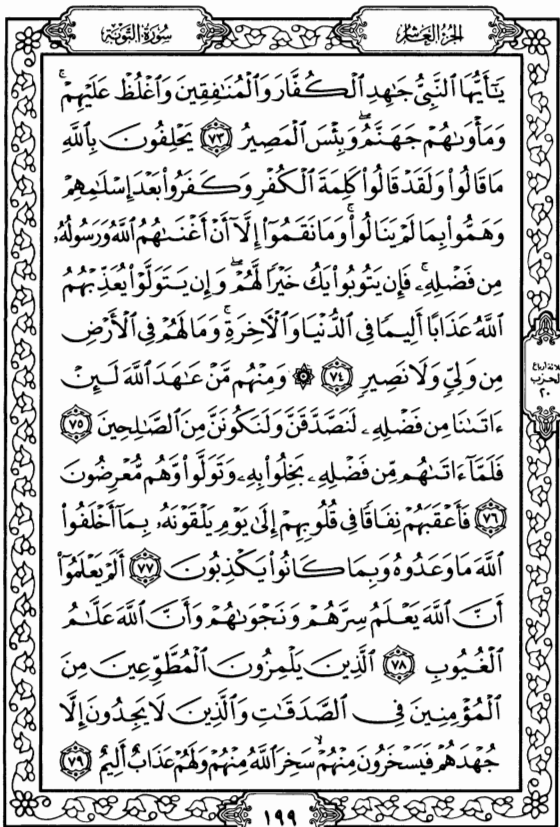 سُورَةُ التَّوْبَةِ
الجُزْءُ العَاشِرُ
يَٰٓأَيُّهَا ٱلنَّبِيُّ جَٰهِدِ ٱلْكُفَّارَ وَٱلْمُنَٰفِقِينَ وَٱغْلُظْ عَلَيْهِمْۚ
وَمَأْوَىٰهُمْ جَهَنَّمُۖ وَبِئْسَ ٱلْمَصِيرُ ٧٣ يَحْلِفُونَ بِٱللَّهِ
مَا قَالُوا۟ وَلَقَدْ قَالُوا۟ كَلِمَةَ ٱلْكُفْرِ وَكَفَرُوا۟ بَعْدَ إِسْلَٰمِهِمْ
وَهَمُّوا۟ بِمَا لَمْ يَنَالُوا۟ۚ وَمَا نَقَمُوٓا۟ إِلَّآ أَنْ أَغْنَىٰهُمُ ٱللَّهُ وَرَسُولُهُۥ
مِن فَضْلِهِۦۚ فَإِن يَتُوبُوا۟ يَكُ خَيْرًا لَّهُمْۖ وَإِن يَتَوَلَّوْا۟ يُعَذِّبْهُمُ
ٱللَّهُ عَذَابًا أَلِيمًا فِي ٱلدُّنْيَا وَٱلْءَاخِرَةِۚ وَمَا لَهُمْ فِي ٱلْأَرْضِ
مِن وَلِيٍّ وَلَا نَصِيرٍ ٧٤ ۞ وَمِنْهُم مَّنْ عَٰهَدَ ٱللَّهَ لَئِنْ
ءَاتَىٰنَا مِن فَضْلِهِۦ لَنَصَّدَّقَنَّ وَلَنَكُونَنَّ مِنَ ٱلصَّٰلِحِينَ ٧٥
فَلَمَّآ ءَاتَىٰهُم مِّن فَضْلِهِۦ بَخِلُوا۟ بِهِۦ وَتَوَلَّوا۟ وَّهُم مُّعْرِضُونَ
٧٦ فَأَعْقَبَهُمْ نِفَاقًا فِي قُلُوبِهِمْ إِلَىٰ يَوْمِ يَلْقَوْنَهُۥ بِمَآ أَخْلَفُوا۟
ٱللَّهَ مَا وَعَدُوهُ وَبِمَا كَانُوا۟ يَكْذِبُونَ ٧٧ أَلَمْ يَعْلَمُوٓا۟
أَنَّ ٱللَّهَ يَعْلَمُ سِرَّهُمْ وَنَجْوَىٰهُمْ وَأَنَّ ٱللَّهَ عَلَّٰمُ
ٱلْغُيُوبِ ٧٨ ٱلَّذِينَ يَلْمِزُونَ ٱلْمُطَّوِّعِينَ مِنَ
ٱلْمُؤْمِنِينَ فِي ٱلصَّدَقَٰتِ وَٱلَّذِينَ لَا يَجِدُونَ إِلَّا
جُهْدَهُمْ فَيَسْخَرُونَ مِنْهُمْۙ سَخِرَ ٱللَّهُ مِنْهُمْ وَلَهُمْ عَذَابٌ أَلِيمٌ ٧٩
ثلاثة أرباع
الحزب
٢٠
١٩٩